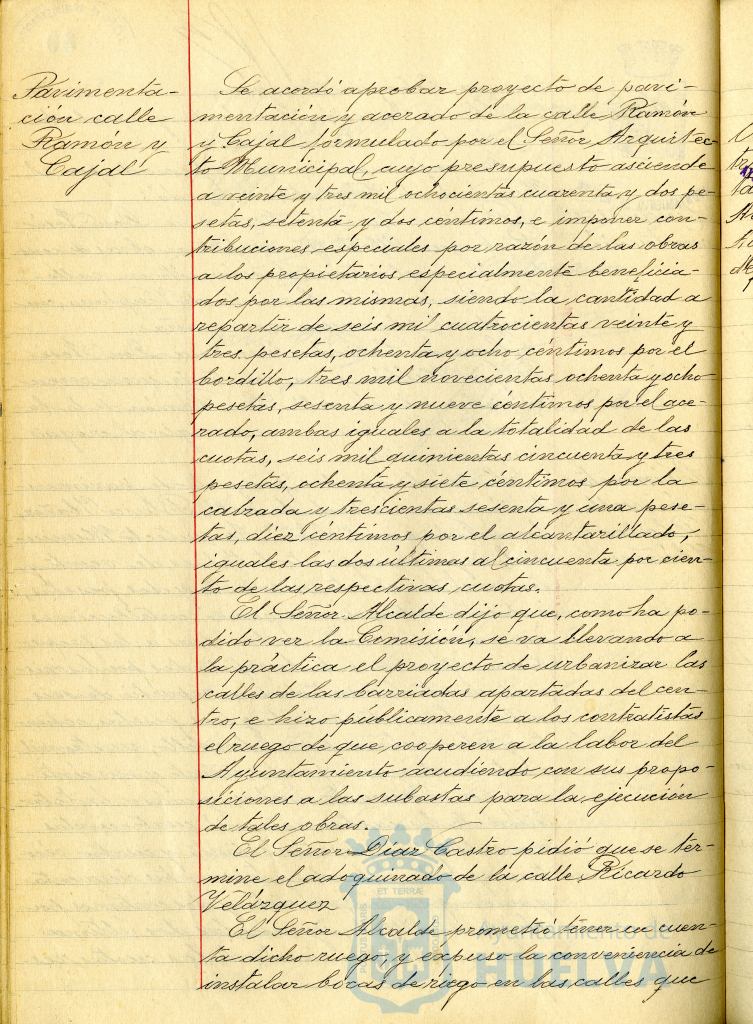 Pavimenta-
ción calle
Ramón y
Cajal
Se acordó aprobar proyecto de pavi-
mentación y acerado de la calle Ramón
y Cajal formulado por el Señor Arquitec-
to Municipal, cuyo presupuesto asciende
a veinte y tres mil ochocientas cuarenta y dos pe-
setas, setenta y dos céntimos, e imponer con-
tribuciones especiales por razón de las obras
a los propietarios especialmente beneficia-
dos por las mismas, siendo la cantidad a
repartir de seis mil cuatrocientas veinte y
tres pesetas, ochenta y ocho céntimos por el
bordillo, tres mil novecientas ochenta y ocho
pesetas, sesenta y nueve céntimos por el ace-
rado, ambas iguales a la totalidad de las
cuotas, seis mil quinientas cincuenta y tres
pesetas, ochenta y siete céntimos por la
calzada y trescientas sesenta y una pese-
tas, diez céntimos por el alcantarillado,
iguales las dos últimas al cincuenta por cien-
to de las respectivas cuotas.
El Señor Alcalde dijo que, como ha po-
dido ver la Comisión, se va llevando a
la práctica el proyecto de urbanizar las
calles de las barriadas apartadas del cen-
tro, e hizo públicamente a los contratistas
el ruego de que cooperen a la labor del
Ayuntamiento acudiendo con sus propo-
siciones a las subastas para la ejecución
de tales obras.
El Señor Díaz Castro pidió que se ter-
mine el adoquinado de la calle Ricardo
Velázquez
El Señor Alcalde prometió tener en cuen-
ta dicho ruego, y expuso la conveniencia de
instalar bocas de riego en las calles que
ET TERRÆ
Ayuntamiento de
HUELVA